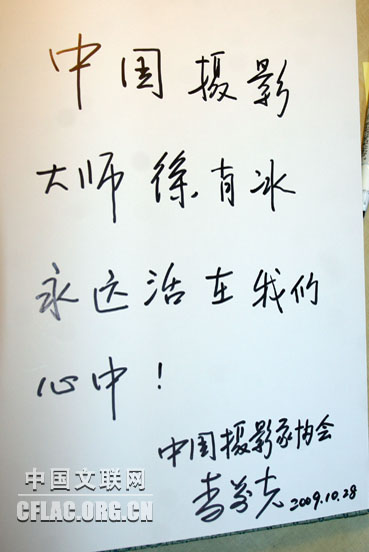 中国摄影
大师徐肖冰
永远活在我们
心中！
中国摄影家协会
李前光 2009.10.28
中国文联网
CFLAC.ORG.CN